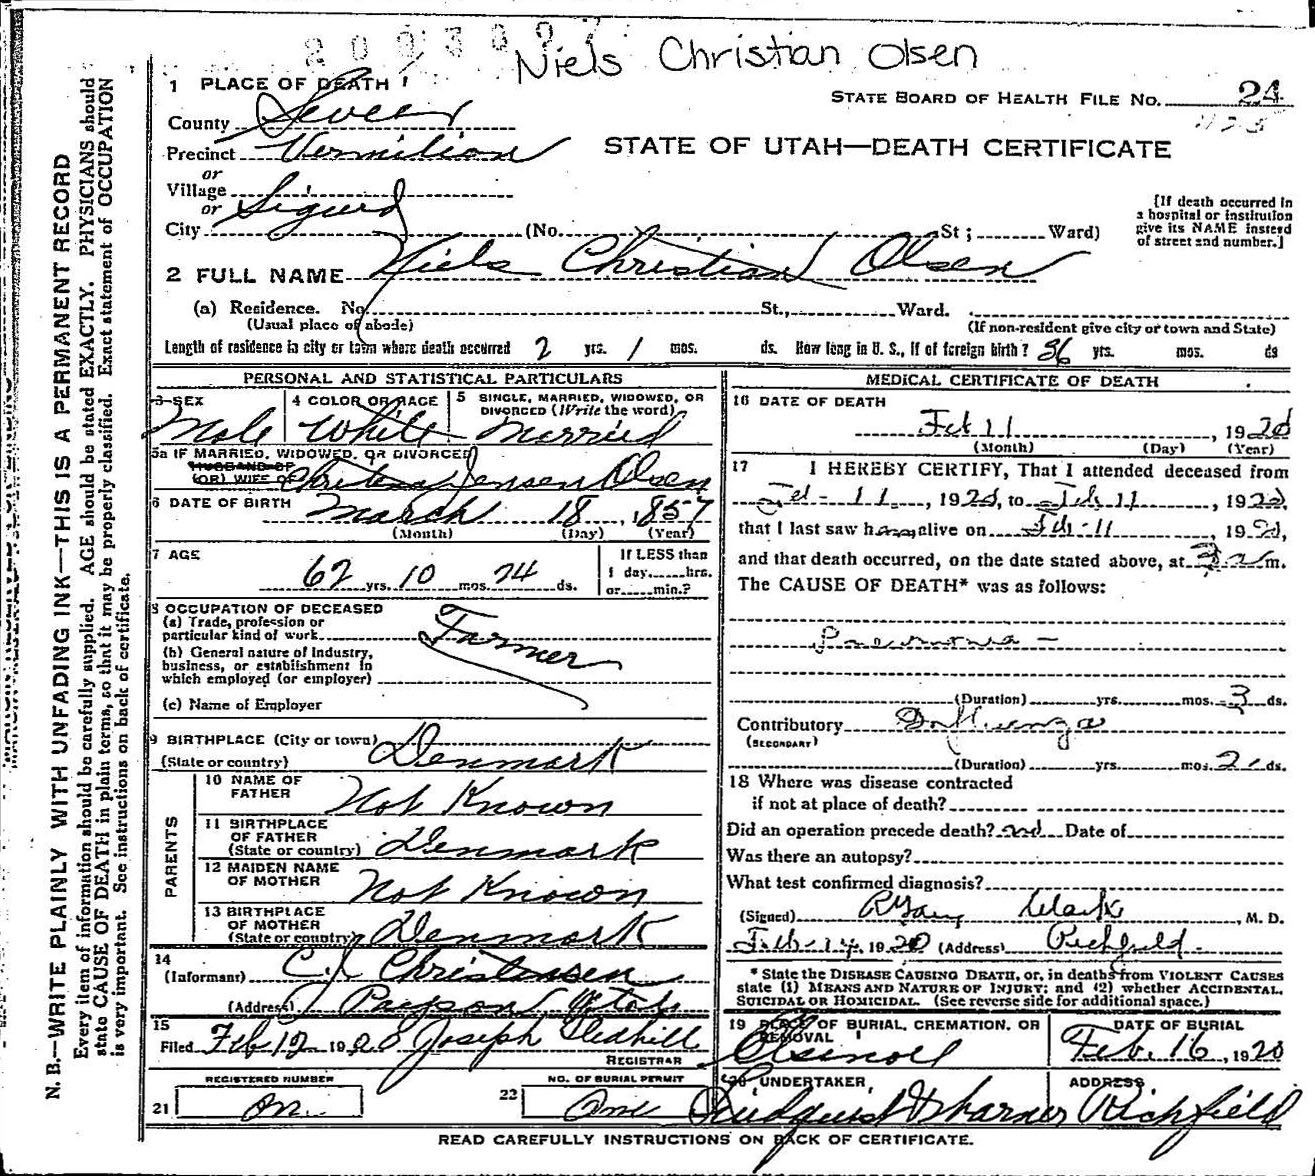 2093
Niels Christian Olsen
1 PLACE OF DEATH
STATE BOARD OF HEALTH FILE No. 24
County Sevier
Precinct Vermilion
STATE OF UTAH—DEATH CERTIFICATE
or
Village
or
City Sigurd (No. St; Ward)
[If death occurred in
a hospital or institution
give its NAME instead
of street and number.]
2 FULL NAME Niels Christian Olsen
(a) Residence. No. St., Ward.
(Usual place of abode) (If non-resident give city or town and State)
Length of residence in city or town where death occurred 2 yrs. 1 mos. ds. How long in U. S., if of foreign birth? 36 yrs. mos. ds
PERSONAL AND STATISTICAL PARTICULARS
3 SEX
Male
4 COLOR OR RACE
White
5 SINGLE, MARRIED, WIDOWED, OR
DIVORCED (Write the word)
Married
5a IF MARRIED, WIDOWED, OR DIVORCED
HUSBAND OF
(OR) WIFE OF Christena Jensen Olsen
6 DATE OF BIRTH March 18, 1857
(Month) (Day) (Year)
7 AGE
62 yrs. 10 mos. 24 ds.
If LESS than
1 day hrs.
or min.?
8 OCCUPATION OF DECEASED
(a) Trade, profession or
particular kind of work Farmer
(b) General nature of industry,
business, or establishment in
which employed (or employer)
(c) Name of Employer
9 BIRTHPLACE (City or town)
(State or country) Denmark
PARENTS
10 NAME OF
FATHER Not Known
11 BIRTHPLACE
OF FATHER
(State or country) Denmark
12 MAIDEN NAME
OF MOTHER Not Known
13 BIRTHPLACE
OF MOTHER
(State or country) Denmark
14
(Informant) C. J. Christensen
(Address) Payson Utah
15
Filed Feb 12 1920 Joseph Gledhill
REGISTRAR
REGISTERED NUMBER
21 One
NO. OF BURIAL PERMIT
22 One
MEDICAL CERTIFICATE OF DEATH
16 DATE OF DEATH
Feb 11, 1920
(Month) (Day) (Year)
17 I HEREBY CERTIFY, That I attended deceased from
Feb - 11, 1920, to Feb 11, 1920,
that I last saw him alive on Feb - 11, 1920,
and that death occurred, on the date stated above, at 3 a m.
The CAUSE OF DEATH* was as follows:
Pneumonia -
(Duration) yrs. mos. 3 ds.
Contributory Influenza
(SECONDARY)
(Duration) yrs. mos. 2 ds.
18 Where was disease contracted
if not at place of death?
Did an operation precede death? no Date of
Was there an autopsy?
What test confirmed diagnosis?
(Signed) Clark, M. D.
Feb - 14, 1920 (Address) Richfield
* State the DISEASE CAUSING DEATH, or, in deaths from VIOLENT CAUSES
state (1) MEANS AND NATURE OF INJURY; and (2) whether ACCIDENTAL,
SUICIDAL OR HOMICIDAL. (See reverse side for additional space.)
19 PLACE OF BURIAL, CREMATION, OR
REMOVAL
Elsinore
DATE OF BURIAL
Feb. 16, 1920
20 UNDERTAKER,
Lindquist
ADDRESS
Richfield
READ CAREFULLY INSTRUCTIONS ON BACK OF CERTIFICATE.
N. B.—WRITE PLAINLY WITH UNFADING INK—THIS IS A PERMANENT RECORD
Every item of information should be carefully supplied. AGE should be stated EXACTLY. PHYSICIANS should
state CAUSE OF DEATH in plain terms, so that it may be properly classified. Exact statement of OCCUPATION
is very important. See instructions on back of certificate.